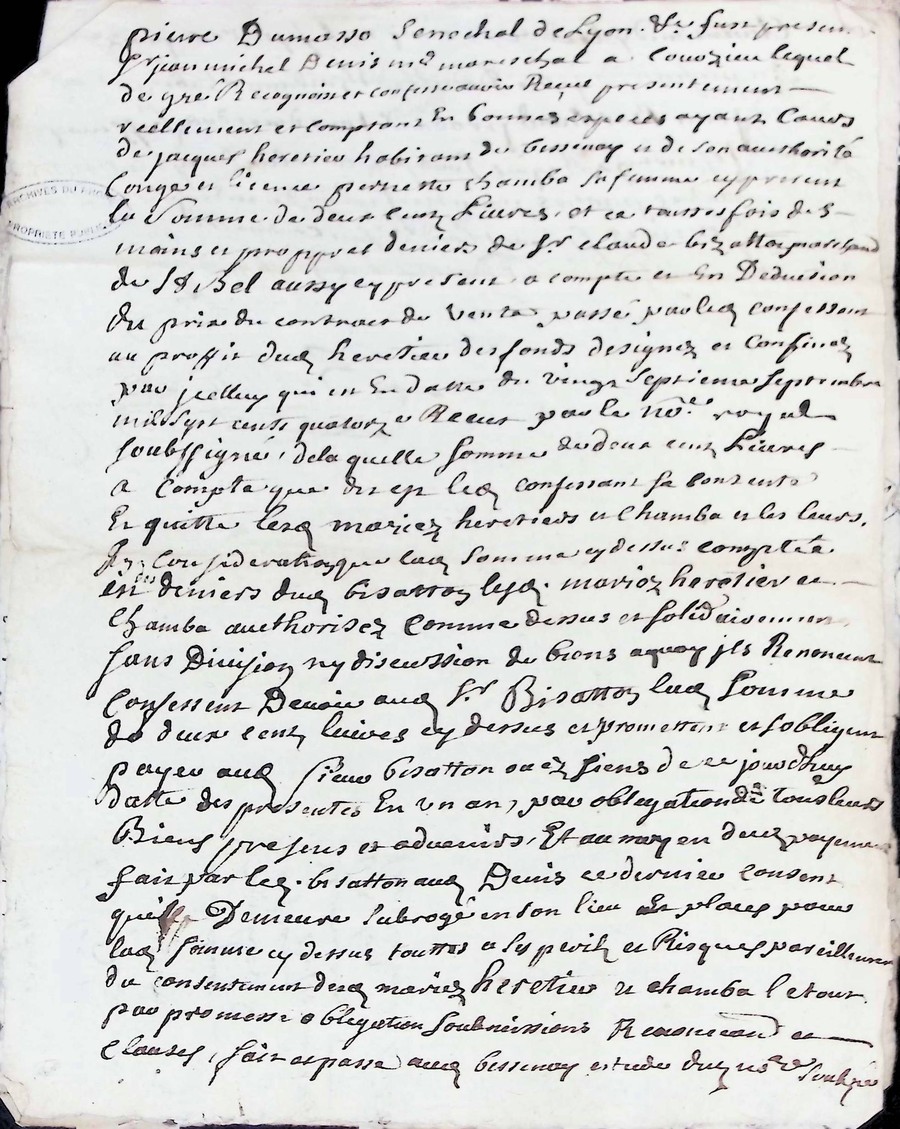 pierre Dumasso Senechal de Lyon. &c fust present
Sr jean michel Denis md mareschal a Couzieu lequel
de gré Recognoist et confesse avoir Reçue presentement
reellement et comptant En bonnes especes ayant Cours
de jacques heretier habitant de bessenay et de son authorité
Congé et licence pernette Chamba sa femme cy present
la Somme de deux cent Livres, et ce touttesfois des
mains et propres deniers de Sr claude bizatton marchand
de St Bel aussy cy present a compte et En Deduction
du prix du contract de Vente passé par led confessant
au proffit dud heretier des fonds designez et Confinez
par jcelluy qui est En datte du vingt Septieme Septembre
mil Sept cents quatorze Receu par le nore royal
soubssigné, de laquelle somme de deux cent Livres
a compte que dit est led confessant se contente
Et quitte lesd mariez heretiers et Chamba et les leurs.
En Consideration que lad somme cy dessus comptée
est des deniers dud bisatton lesd. mariez heretier et
Chamba authorisez comme dessus et solidairement
sans Division ny discussion de biens a quoy jls Renoncent
Confessent Devoir aud Sr Bisatton lad somme
de deux cent livres cy dessus et promettent et sobligent
payer aud Sieur bisatton ou ez siens de ce jourdhuy
datte des presentes En un an, par obligation de tous leurs
Biens presens et advenirs, Et au moyen dud payement
fait par led. bisatton aud Denis ce dernier consent
quil Demeure subrogé en son lieu Et place pour
lad somme cy dessus touttes a ses perils et Risques pareillement
du consentement desd mariez heretier et chamba le tout
par promesse obligation soubmissions Renonciaon et
clauses, fait et passe aud bessenay estude dud nore soubsné
ARCHIVES DU
PROPRIETE PUBLIQUE